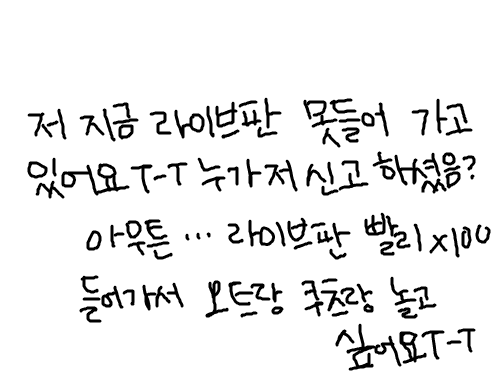 저 지금 라이브판 못들어 가고
있어요 T-T 누가 저 신고 하셨음?
아무튼... 라이브판 빨리x100
들어가서 오트랑 쿠츠랑 놀고
싶어요T-T